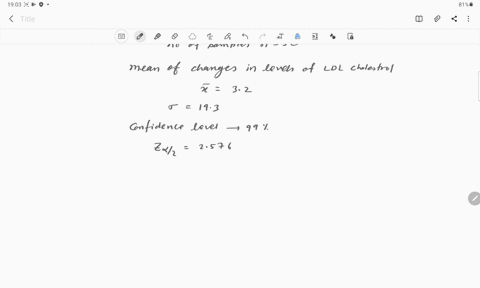 19:03
81%
Title
mean of changes in levels of LDL cholostrol
x̄ = 3.2
σ = 19.3
Confidence level → 99%
Zα/2 = 2.576